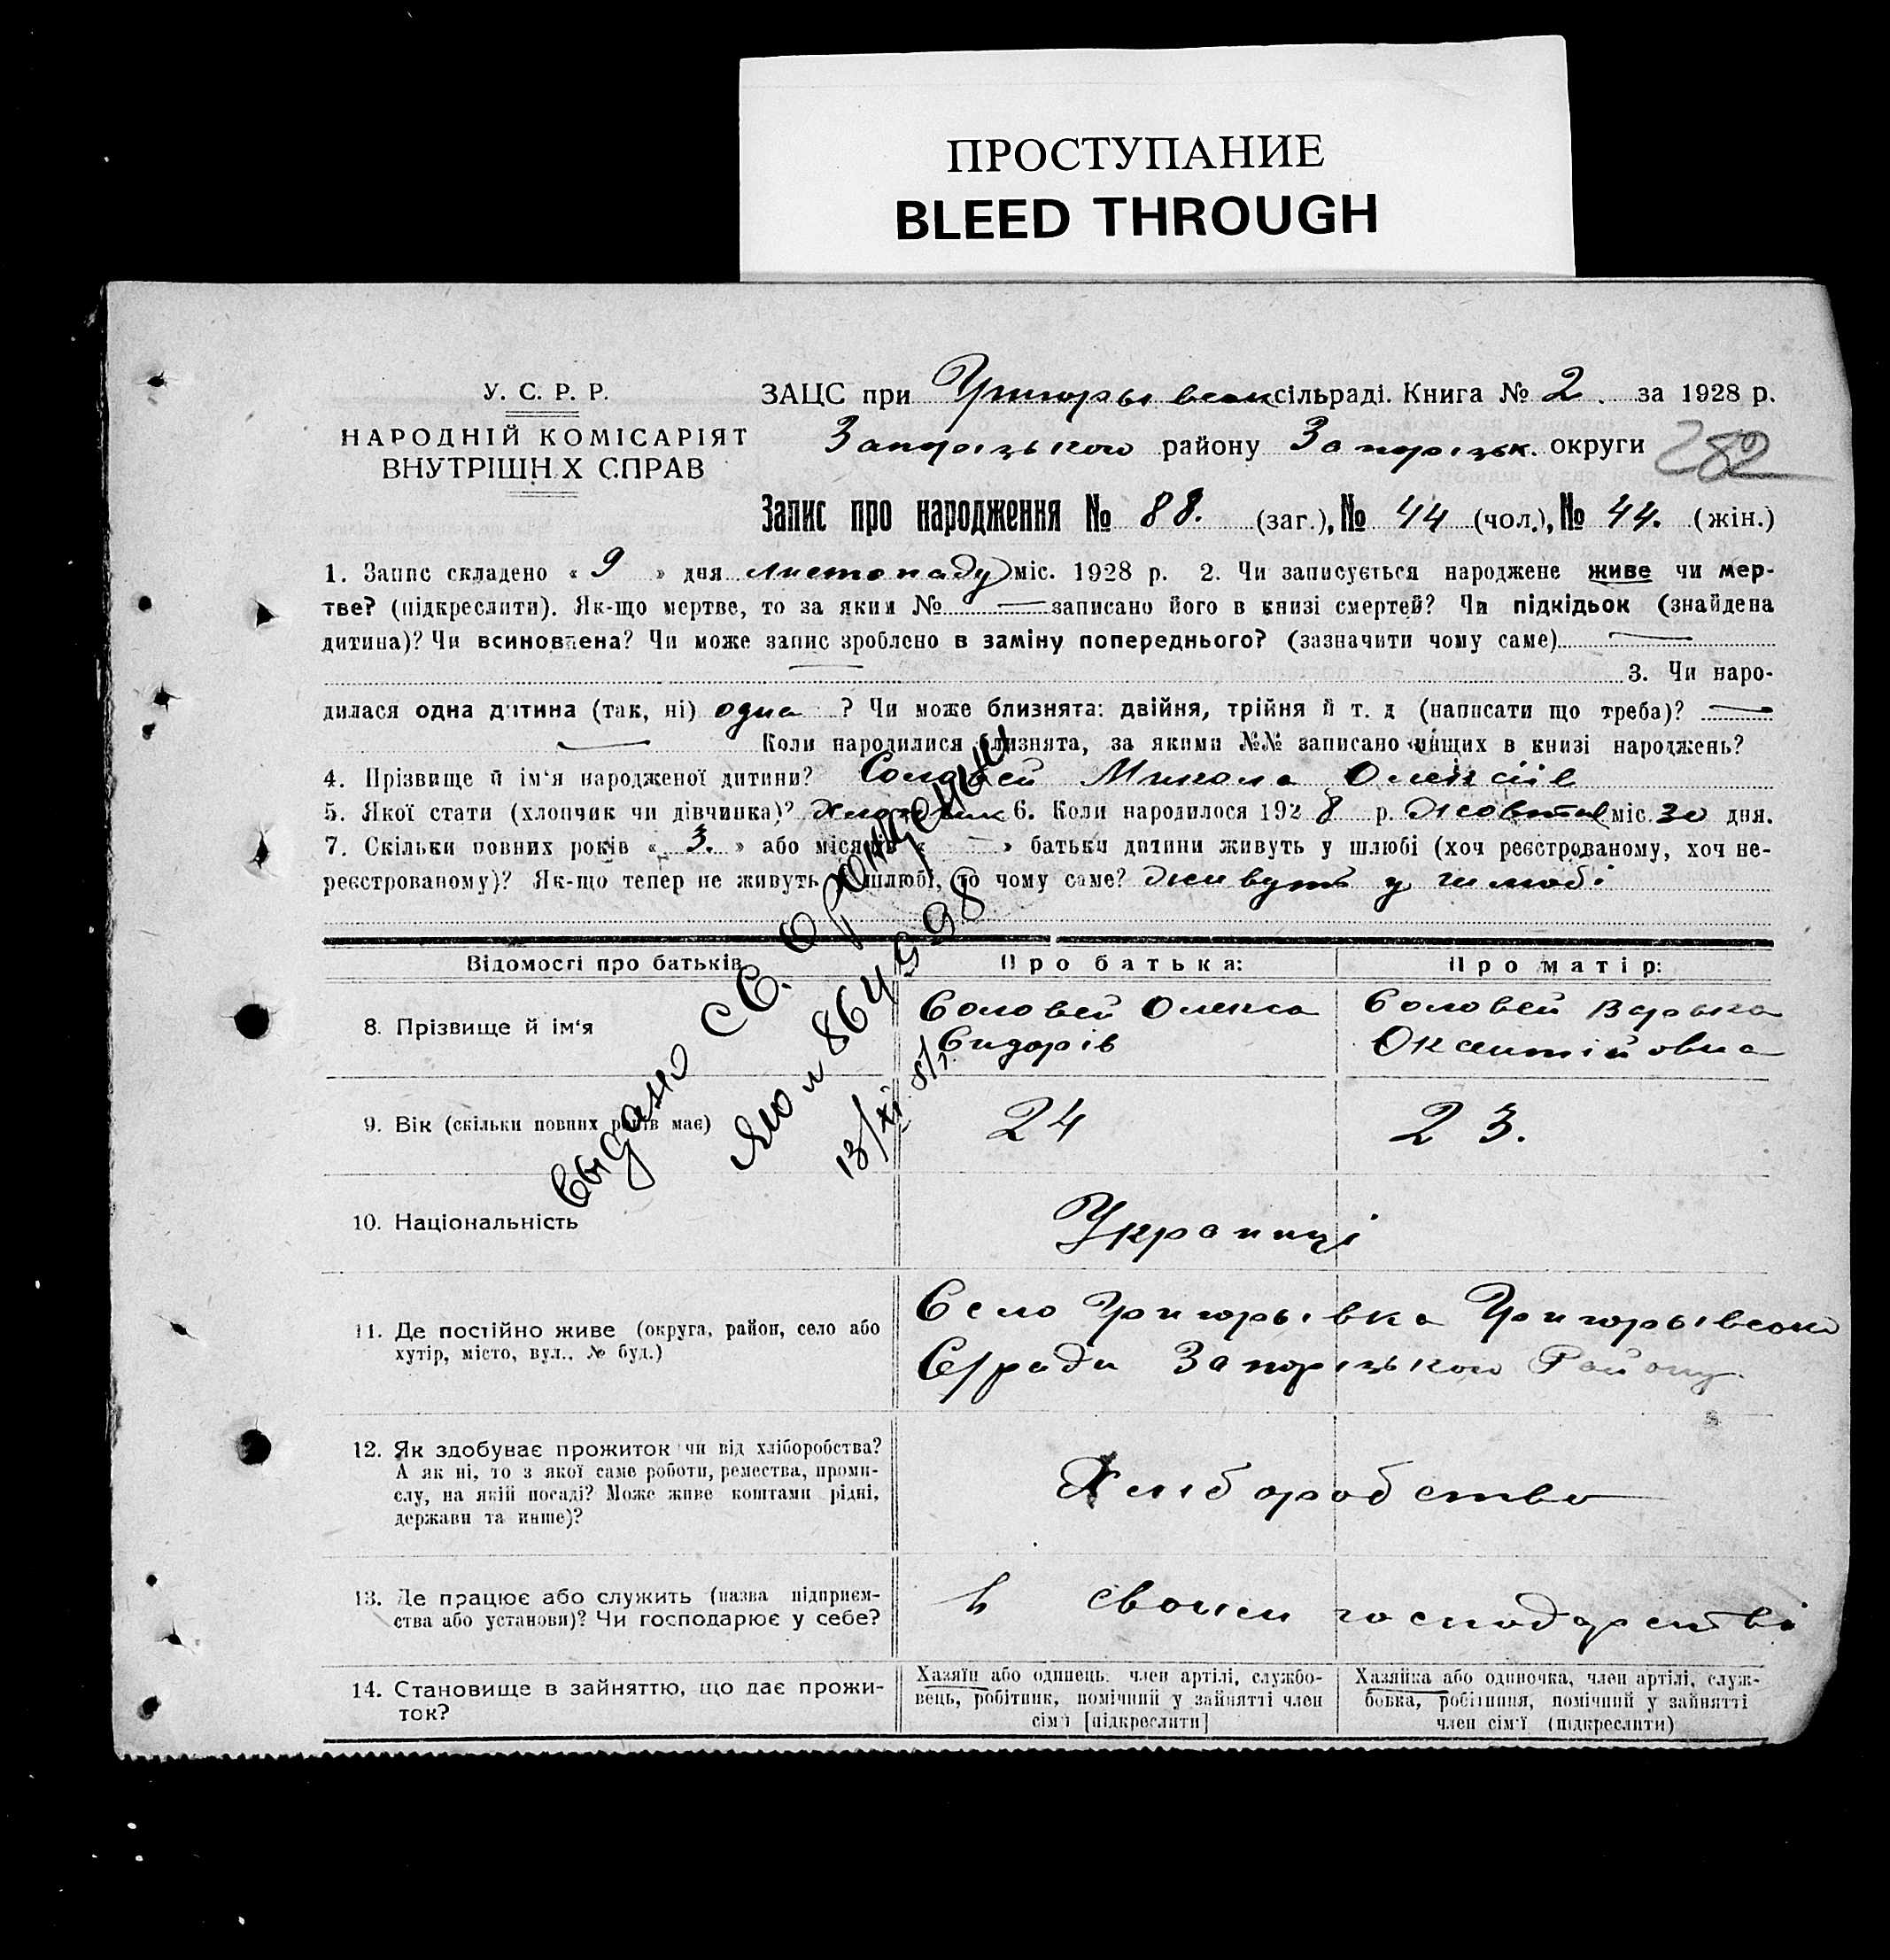 ПРОСТУПАНИЕ
BLEED THROUGH
У. С. Р. Р.
НАРОДНІЙ КОМІСАРІЯТ
ВНУТРІШН Х СПРАВ
ЗАЦС при Григорывськ сільраді. Книга № 2. за 1928 р.
Запорізького району Запорізьк. округи
282
Запис про народження № 88. (заг.), № 44 (чол.), № 44. (жін.)
1. Запис складено « 9 » дня листопаду міс. 1928 р. 2. Чи записується народжене живе чи мер-
тве? (підкреслити). Як-що мертве, то за яким № — записано його в книзі смертей? Чи підкідьок (знайдена
дитина)? Чи всиновлена? Чи може запис зроблено в заміну попереднього? (зазначити чому саме) —
— 3. Чи наро-
дилася одна дитина (так, ні) одна ? Чи може близнята: двійня, трійня й т. д (написати що треба)? —
— Коли народилися близнята, за якими №№ записано инщих в книзі народжень?
4. Прізвище й ім'я народженої дитини? Соловей Микола Олексіїв
5. Якої стати (хлопчик чи дівчинка)? хлопчик 6. Коли народилося 1928 р. Жовтня міс. 30 дня.
7. Скільки повних років « 3. » або місяців « — » батьки дитини живуть у шлюбі (хоч реєстрованому, хоч не-
реєстрованому)? Як-що тепер не живуть у шлюбі, то чому саме? живуть у шлюбі
Выдано св. о рождении
ЯЮ № 864998
13/XI 51г.
Відомості про батьків
Про батька:
Про матір:
8. Прізвище й ім'я
Соловей Олекса
Сидорів
Соловей Варька
Оксентійовна
9. Вік (скільки повних років має)
24
23.
10. Національність
Украинці
11. Де постійно живе (округа, район, село або
хутір, місто, вул., № буд.)
Село Григорывка Григорывської
С/ради Запорізького Району.
12. Як здобуває прожиток чи від хліборобства?
А як ні, то з якої саме роботи, ремества, проми-
слу, на якій посаді? Може живе коштами рідні,
держави та инше)?
Хліборобство
13. Де працює або служить (назва підприєм-
ства або установи)? Чи господарює у себе?
в своїм господарстві
14. Становище в зайняттю, що дає прожи-
ток?
Хазяїн або одинець, член артілі, службо-
вець, робітник, помічний у зайнятті член
сім'ї [підкреслити]
Хазяйка або одиночка, член артілі, служ-
бовка, робітниця, помічний у зайнятті
член сім'ї (підкреслити)